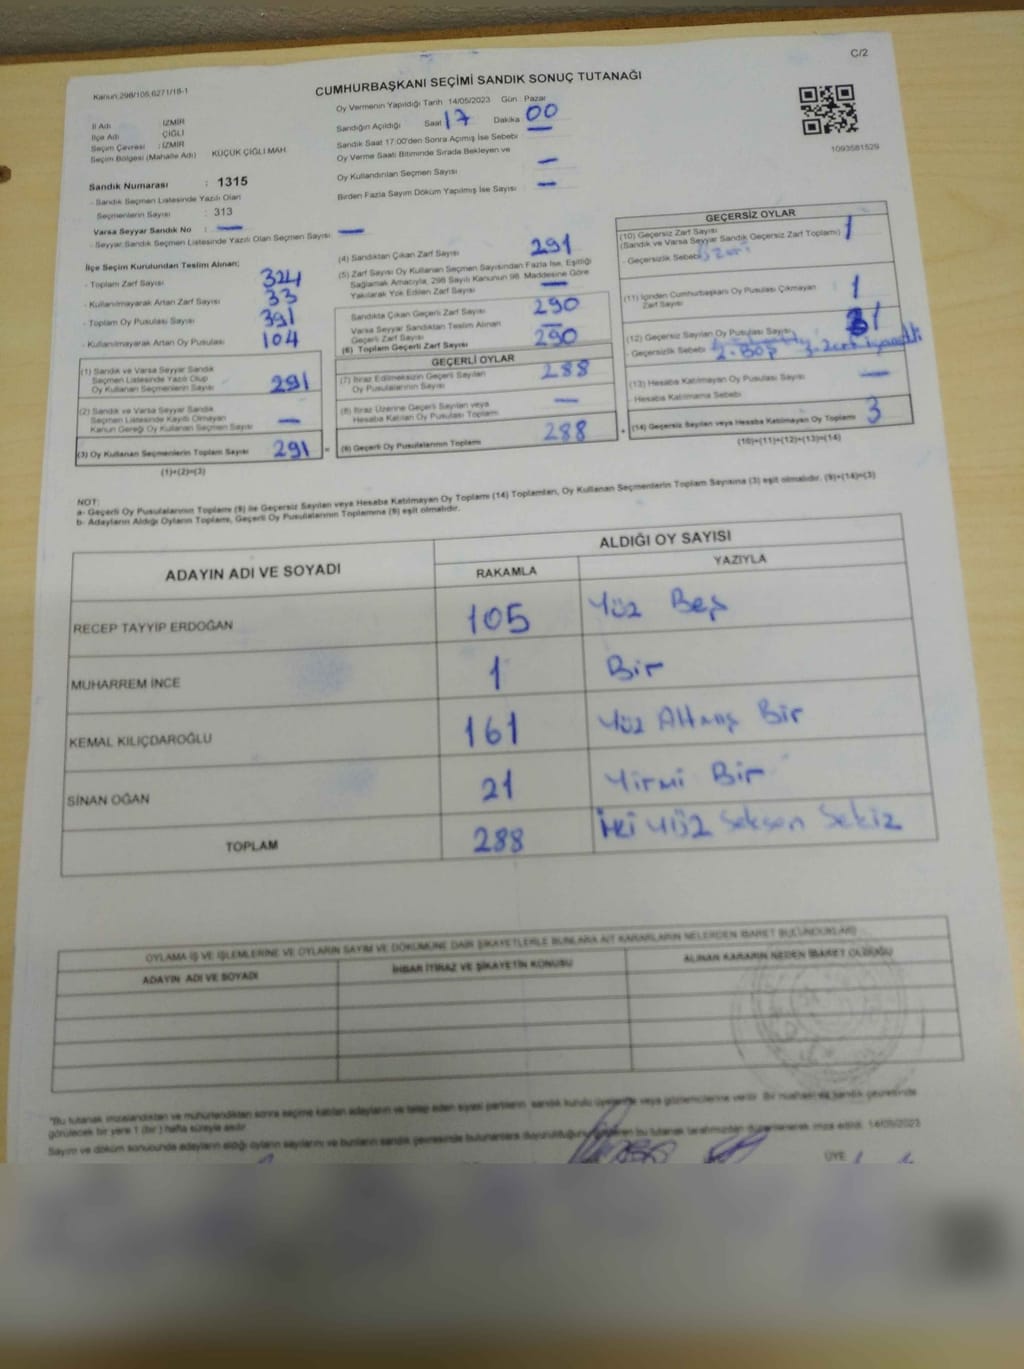 C/2
Kanun:298/105,6271/18-1
CUMHURBAŞKANI SEÇİMİ SANDIK SONUÇ TUTANAĞI
İl Adı : İZMİR
İlçe Adı : ÇİĞLİ
Seçim Çevresi : İZMİR
Seçim Bölgesi (Mahalle Adı) KÜÇÜK ÇİĞLİ MAH.
Oy Vermenin Yapıldığı Tarih 14/05/2023 Gün : Pazar
Sandığın Açıldığı Saat 17 Dakika 00
Sandık Saat 17:00'den Sonra Açımış İse Sebebi —
Oy Verme Saati Bitiminde Sırada Bekleyen ve
Oy Kullandırılan Seçmen Sayısı —
Birden Fazla Sayım Döküm Yapılmış İse Sayısı : —
1093581529
Sandık Numarası : 1315
- Sandık Seçmen Listesinde Yazılı Olan
Seçmenlerin Sayısı : 313
Varsa Seyyar Sandık No : —
- Seyyar Sandık Seçmen Listesinde Yazılı Olan Seçmen Sayısı : —
İlçe Seçim Kurulundan Teslim Alınan;
- Toplam Zarf Sayısı 324
- Kullanılmayarak Artan Zarf Sayısı 33
- Toplam Oy Pusulası Sayısı 391
- Kullanılmayarak Artan Oy Pusulası 104
(1) Sandık ve Varsa Seyyar Sandık
Seçmen Listesinde Yazılı Olup
Oy Kullanan Seçmenlerin Sayısı 291
(2) Sandık ve Varsa Seyyar Sandık
Seçmen Listesinde Kayıtlı Olmayan
Kanun Gereği Oy Kullanan Seçmen Sayısı —
(3) Oy Kullanan Seçmenlerin Toplam Sayısı 291
(1)+(2)=(3)
(4) Sandıktan Çıkan Zarf Sayısı 291
(5) Zarf Sayısı Oy Kullanan Seçmen Sayısından Fazla İse, Eşitliği
Sağlamak Amacıyla, 298 Sayılı Kanunun 98. Maddesine Göre
Yakılarak Yok Edilen Zarf Sayısı —
Sandıkta Çıkan Geçerli Zarf Sayısı 290
Varsa Seyyar Sandıktan Teslim Alınan
Geçerli Zarf Sayısı —
(6) Toplam Geçerli Zarf Sayısı 290
GEÇERLİ OYLAR
(7) İtiraz Edilmeksizin Geçerli Sayılan
Oy Pusulalarının Sayısı 288
(8) İtiraz Üzerine Geçerli Sayılan veya
Hesaba Katılan Oy Pusulası Toplamı —
(9) Geçerli Oy Pusulalarının Toplamı 288
GEÇERSİZ OYLAR
(10) Geçersiz Zarf Sayısı
(Sandık ve Varsa Seyyar Sandık Geçersiz Zarf Toplamı) 1
- Geçersizlik Sebebi
(11) İçinden Cumhurbaşkanı Oy Pusulası Çıkmayan
Zarf Sayısı 1
(12) Geçersiz Sayılan Oy Pusulası Sayısı 1
- Geçersizlik Sebebi
(13) Hesaba Katılmayan Oy Pusulası Sayısı —
- Hesaba Katılmama Sebebi
(14) Geçersiz Sayılan veya Hesaba Katılmayan Oy Toplamı 3
(10)+(11)+(12)+(13)=(14)
NOT:
a- Geçerli Oy Pusulalarının Toplamı (9) ile Geçersiz Sayılan veya Hesaba Katılmayan Oy Toplamı (14) Toplamları, Oy Kullanan Seçmenlerin Toplam Sayısına (3) eşit olmalıdır. (9)+(14)=(3)
b- Adayların Aldığı Oyların Toplamı, Geçerli Oy Pusulalarının Toplamına (9) eşit olmalıdır.
ADAYIN ADI VE SOYADI ALDIĞI OY SAYISI
RAKAMLA YAZIYLA
RECEP TAYYİP ERDOĞAN 105 Yüz Beş
MUHARREM İNCE 1 Bir
KEMAL KILIÇDAROĞLU 161 Yüz Altmış Bir
SİNAN OĞAN 21 Yirmi Bir
TOPLAM 288 İki Yüz Seksen Sekiz
OYLAMA İŞ VE İŞLEMLERİNE VE OYLARIN SAYIM VE DÖKÜMÜNE DAİR ŞİKAYETLERLE BUNLARA AİT KARARLARIN NELERDEN İBARET BULUNDUKLARI
ADAYIN ADI VE SOYADI İHBAR İTİRAZ VE ŞİKAYETİN KONUSU ALINAN KARARIN NEDEN İBARET OLDUĞU
"Bu tutanak imzalandıktan ve mühürlendikten sonra seçime katılan adayların ve talep eden siyasi partilerin sandık kurulu üyelerine veya gözlemcilerine verilir. Bir nüshası da sandık çevresinde
görülecek bir yere 1 (bir) hafta süreyle asılır.
Sayım ve döküm sonucunda adayların aldığı oyların sayılarını ve bunların sandık çevresinde bulunanlara duyurulduğunu gösteren bu tutanak tarafımızdan düzenlenerek imza edildi. 14/05/2023
ÜYE